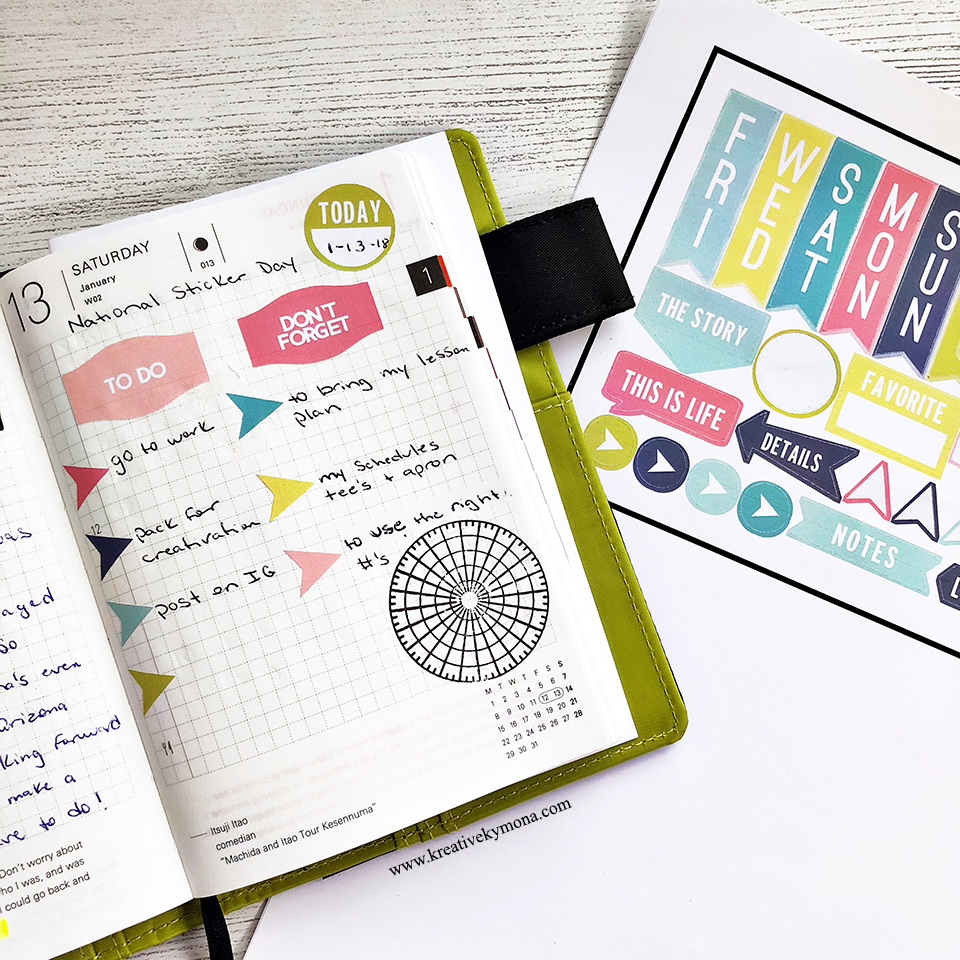 13
SATURDAY
January
W02
013
TODAY
1-13-18
National Sticker Day
1
TO DO
DON'T
FORGET
go to work
to bring my lesson
plan
pack for
creativation
my schedules
tee's + apron
post on IG
to use the right
#'s
12
M T W T F S S
1 2 3 4 5 6 7
8 9 10 11 12 13 14
15 16 17 18 19 20 21
22 23 24 25 26 27 28
29 30 31
Itsuji Itao
comedian
"Machida and Itao Tour Kesennuma"
so
even
Arizona
Forward
make a
to do!
Don't worry about
who I was, and was
I could go back and
www.kreativekymona.com
FRI
WED
SAT
MON
SUN
THE STORY
THIS IS LIFE
FAVORITE
DETAILS
NOTES